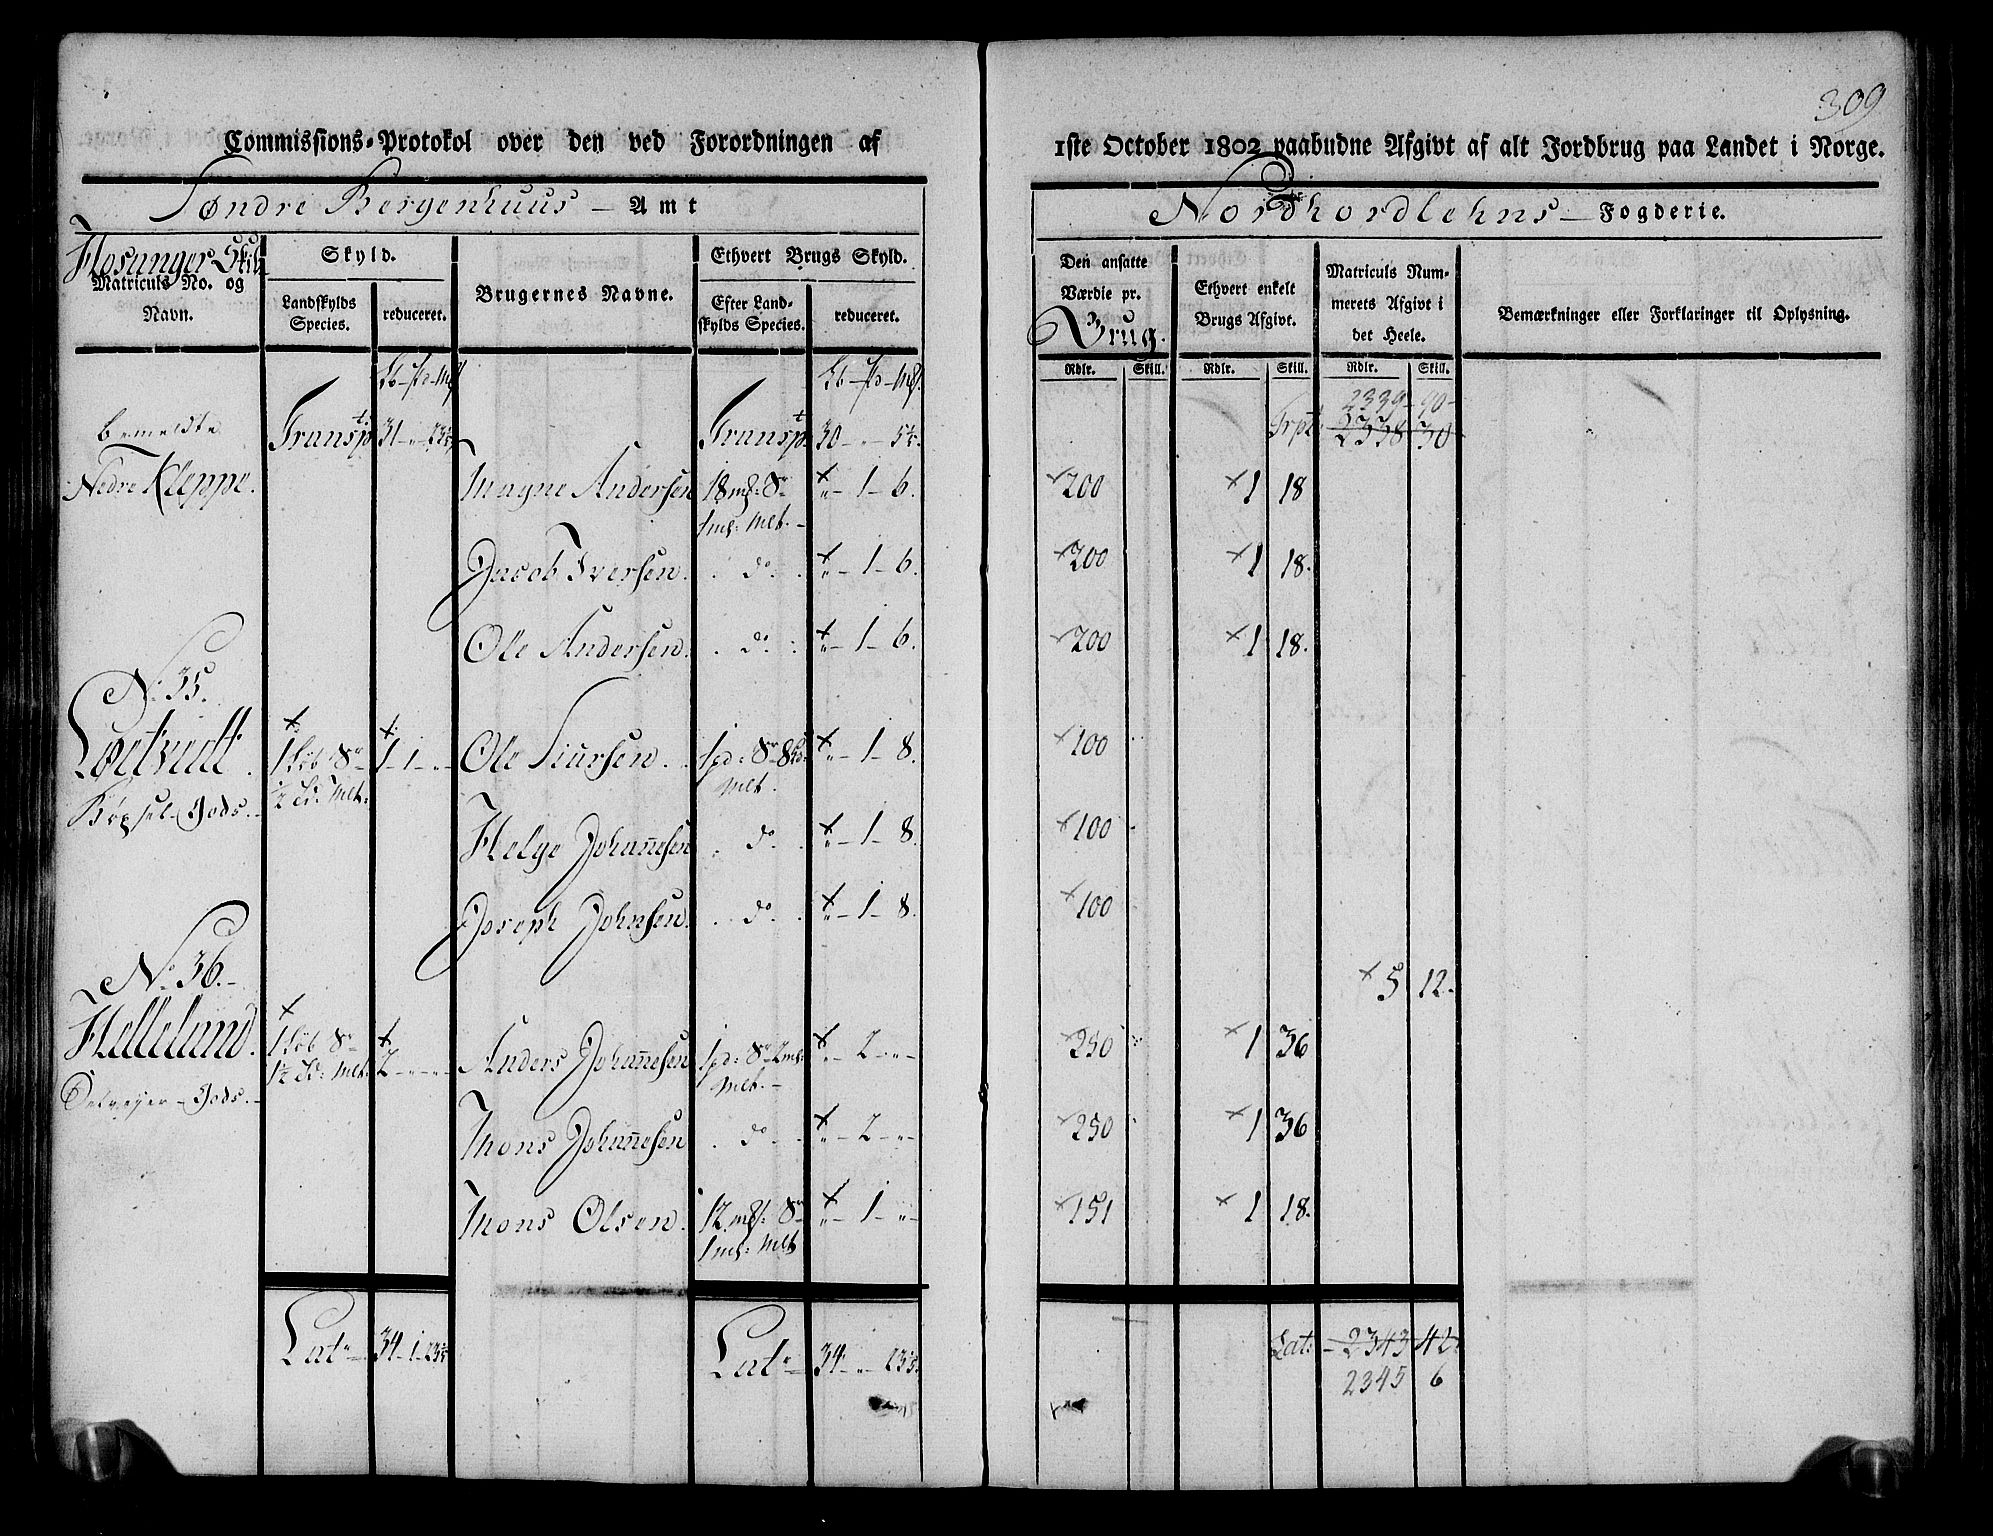 309
Commissions-Protokol over den ved Forordningen af 1ste October 1802 paabudne Afgivt af alt Jordbrug paa Landet i Norge.
Søndre Bergenhuus – Amt
Nordhordlehns – Fogderie.
Hosanger Skib
Matriculs No. og Navn.
Skyld.
Landskylds Species.
reduceret.
Brugernes Navne.
Ethvert Brugs Skyld.
Efter Landskylds Species.
reduceret.
Den ansatte Værdie pr. Brug.
Ethvert enkelt Brugs Afgivt.
Matriculs Nummerets Afgivt i det Heele.
Bemærkninger eller Forklaringer til Oplysning.
Rdlr. Skill. Rdlr. Skill. Rdlr. Skill.
2339 – 90 –
bemeldte Transpt Transpt 30 – „ – Trpt: 2338 30
Nedre Kleppe. Magne Andersen 18 mk: Sr „ – 1 – 6. 200 1 18
Mlt. –
Jacob Iversen. do. „ – 1 – 6. 200 1 18.
Ole Andersen. do. „ – 1 – 6. 200 1 18.
No 35.
Løtvedt. 1 Løb Sr 1 – 1 – „ – Ole Siursen. 1 pd: Sr „ – 1 – 8. 100
½ Td: Mlt: Mlt.
Gods. –
Helge Johannesen do. „ – 1 – 8. 100
Joseph Johnsen. do. „ – 1 – 8. 100
5 12.
No 36. –
Helleland. 1 Løb Sr 2 – „ – „ – Anders Johannesen 1 pd: Sr „ – 2 – „ – 250 1 36
1½ Td: Mlt. Mlt. –
Gods. –
Mons Johannesen do. „ – 2 – „ – 250 1 36
Mons Olsen. 12 mk: Sr „ – 1 – „ – 151 1 18.
Mlt
Lat 34 – 1 – Lat 34 – „ – Lat: 2343 42
2345 6